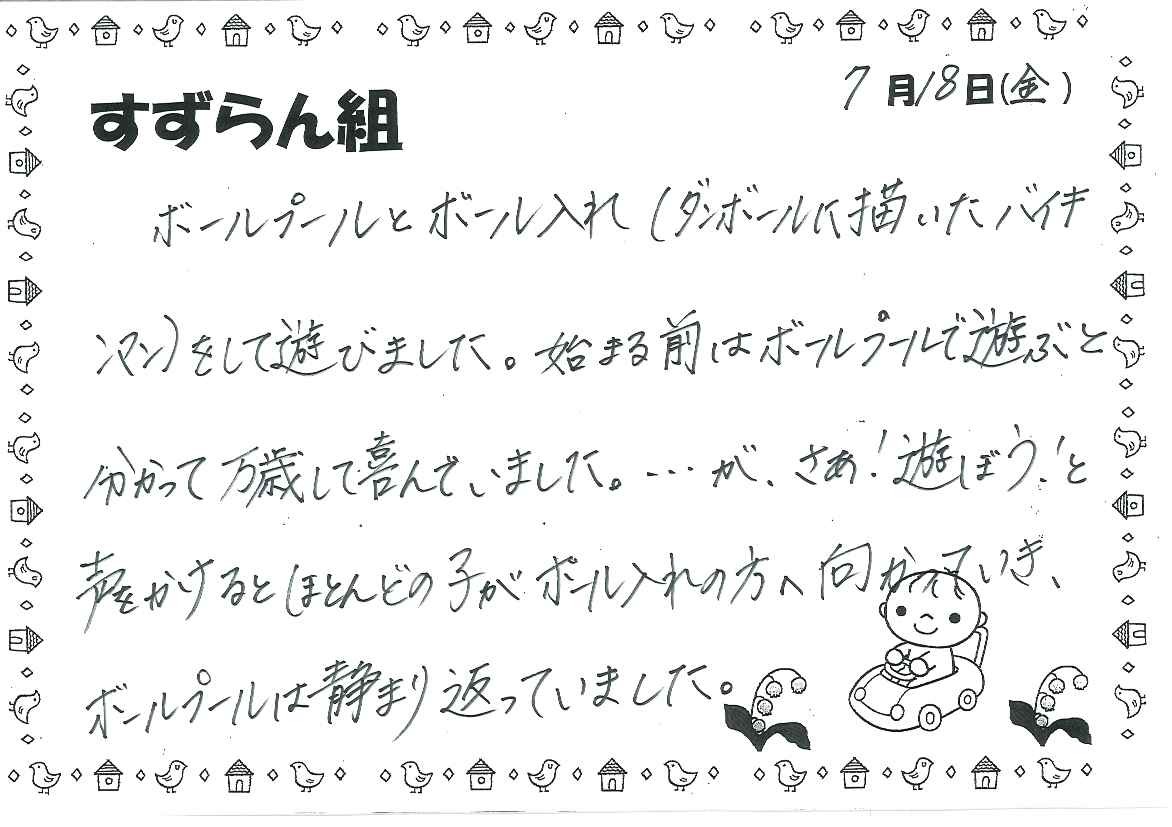 7月18日(金)
すずらん組
ボールプールとボール入れ(ダンボールに描いたバイキ
ンマン)をして遊びました。始まる前はボールプールで遊ぶと
分かって万歳して喜んでいました。…が、さあ!遊ぼう!と
声をかけるとほとんどの子がボール入れの方へ向かっていき、
ボールプールは静まり返っていました。